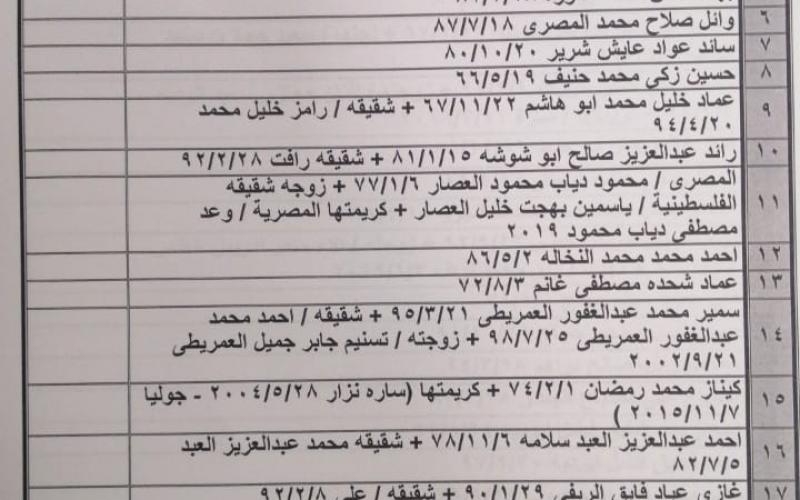 ٦ وائل صلاح محمد المصرى ٨٧/٧/١٨
٧ سائد عواد عايش شرير ٨٠/١٠/٢٠
٨ حسين زكي محمد حنيف ٦٦/٥/١٩
٩ عماد خليل محمد ابو هاشم ٦٧/١١/٢٢ + شقيقه / رامز خليل محمد
٩٤/٤/٢٠
١٠ رائد عبدالعزيز صالح ابو شوشه ٨١/١/١٥ + شقيقه رافت ٩٢/٢/٢٨
المصرى / محمود دياب محمود العصار ٧٧/١/٦ + زوجه شقيقه
١١ الفلسطينية / ياسمين بهجت خليل العصار + كريمتها المصرية / وعد
مصطفى دياب محمود ٢٠١٩
١٢ احمد محمد محمد النخاله ٨٦/٥/٢
١٣ عماد شحده مصطفى غانم ٧٢/٨/٣
سمير محمد عبدالغفور العمريطى ٩٥/٣/٢١ + شقيقه / احمد محمد
١٤ عبدالغفور العمريطى ٩٨/٧/٢٥ + زوجته / تسنيم جابر جميل العمريطى
٢٠٠٢/٩/٢١
١٥ كيناز محمد رمضان ٧٤/٢/١ + كريمتها (ساره نزار ٢٠٠٤/٥/٢٨ - جوليا
٢٠١٥/١١/٧ )
١٦ احمد عبدالعزيز العبد سلامه ٧٨/١١/٦ + شقيقه محمد عبدالعزيز العبد
٨٢/٧/٥
١٧ غازي عياد فايق الريفي ٩٠/١/٢٩ + شقيقه / علي ٩٢/٢/٨